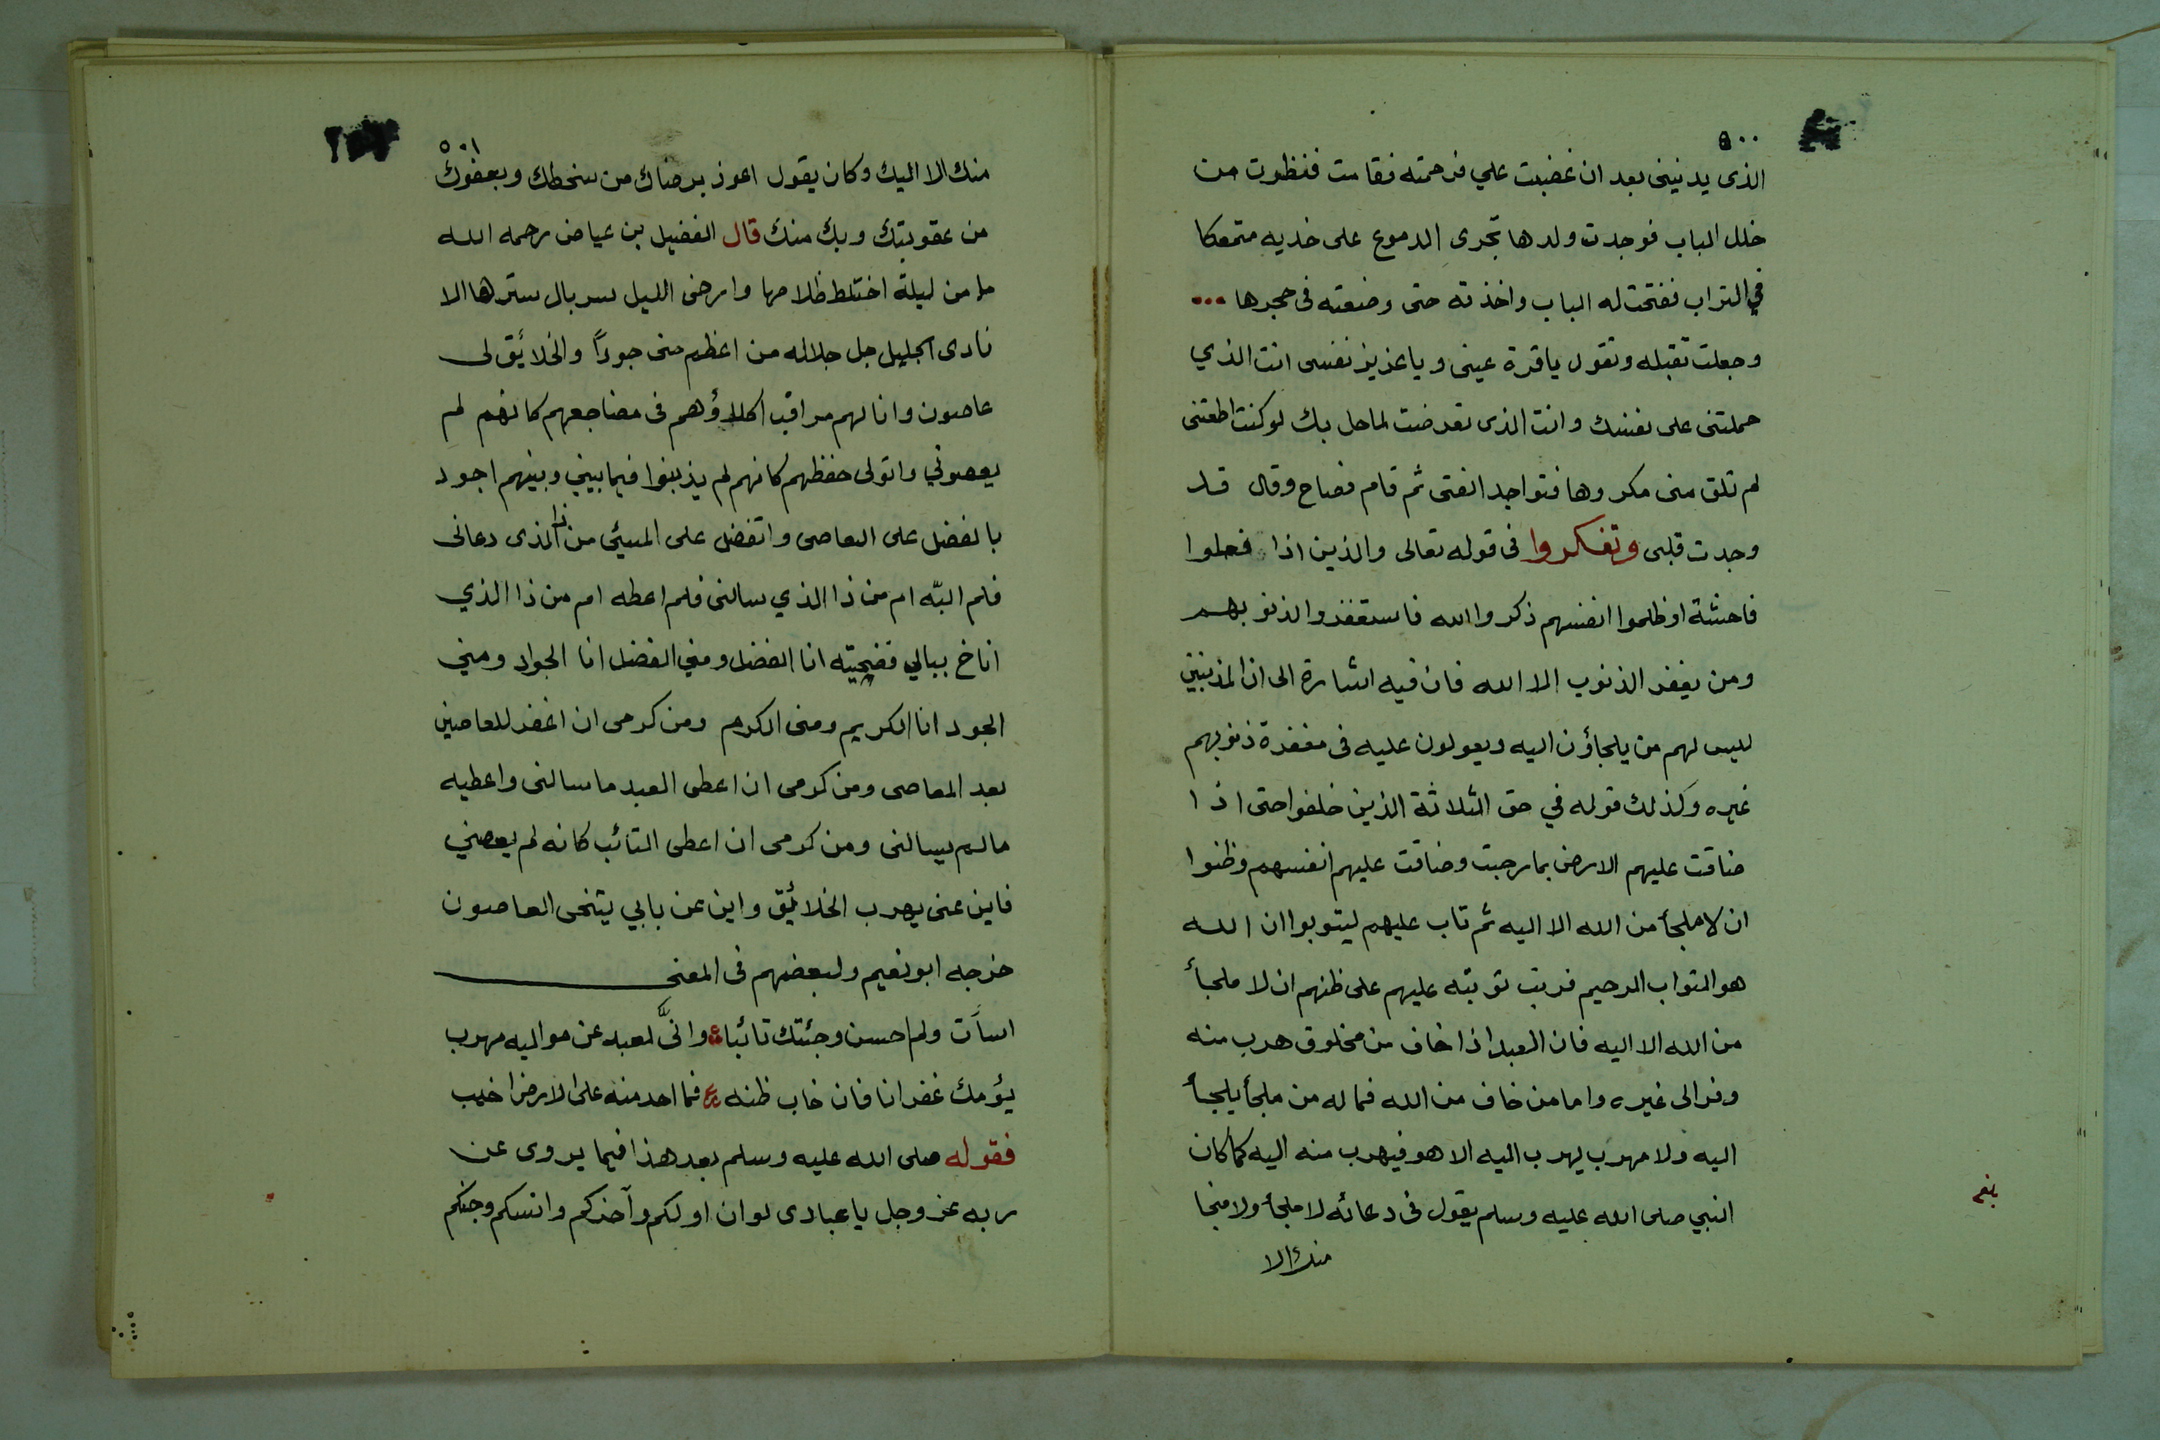 ٥٠٠
الذى يدنينى بعد ان غضبت علي فرحمته فقامت فنظرت من
خلل الباب فوجدت ولدها تجرى الدموع على خديه متمعكا
في التراب ففتحت له الباب واخذته حتى وضعته فى حجرها
وجعلت تقبله وتقول ياقرة عينى وياعزيز نفسى انت الذي
حملتنى على نفسك وانت الذى تعرضت لما حل بك لوكنت اطعتنى
لم تلق منى مكروها فتواجد الفتى ثم قام فصاح وقال قد
وجدت قلبى وتفكروا فى قوله تعالى والذين اذا فعلوا
فاحشة اوظلموا انفسهم ذكروا الله فاستغفروا لذنوبهم
ومن يغفر الذنوب الا الله فان فيه اشارة الى ان المذنبين
ليس لهم من يلجاؤن اليه ويعولون عليه فى مغفرة ذنوبهم
غيره وكذلك قوله في حق الثلاثة الذين خلفوا حتى اذا
ضاقت عليهم الارض بما رحبت وضاقت عليهم انفسهم وظنوا
ان لا ملجأ من الله الا اليه ثم تاب عليهم ليتوبوا ان الله
هو التواب الرحيم فرتب توبته عليهم على ظنهم ان لا ملجأ
من الله الا اليه فان العبد اذا خاف من مخلوق هرب منه
وفر الى غيره واما من خاف من الله فما له من ملجأ يلجأ
اليه ولا مهرب يهرب اليه الا هو فيهرب منه اليه كما كان
النبي صلى الله عليه وسلم يقول فى دعائه لا ملجأ ولا منجا
منك الا
٥٠١
منك الا اليك وكان يقول اعوذ برضاك من سخطك وبعفوك
من عقوبتك وبك منك قال الفضيل بن عياض رحمه الله
ما من ليلة اختلط ظلامها وارخى الليل سربال سترها الا
نادى الجليل جل جلاله من اعظم منى جودًا والخلائق لى
عاصون وانا لهم مراقب اكلاؤهم فى مضاجعهم كانهم لم
يعصوني واتولى حفظهم كانهم لم يذنبوا فيما بيني وبينهم اجود
بالفضل على العاصى واتفضل على المسيئ من ذا الذى دعانى
فلم البّه ام من ذا الذي سالنى فلم اعطه ام من ذا الذي
اناخ ببابي فنحيته انا الفضل ومني الفضل انا الجواد ومني
الجود انا الكريم ومنى الكرم ومن كرمى ان اغفر للعاصين
بعد المعاصى ومن كرمى ان اعطى العبد ما سالنى واعطيه
مالم يسالنى ومن كرمى ان اعطى التائب كانه لم يعصني
فاين عنى يهرب الخلائق واين عن بابي يتنحى العاصون
خرجه ابونعيم ولبعضهم فى المعنى
اسأت ولم احسن وجئتك تائبا وانّى لعبد عن مواليه مهرب
يؤمك غفرانا فان خاب ظنه فما احد منه على الارض اخيب
فقوله صلى الله عليه وسلم بعد هذا فيما يروى عن
ربه عز وجل ياعبادى لوان اولكم وآخركم وانسكم وجنكم